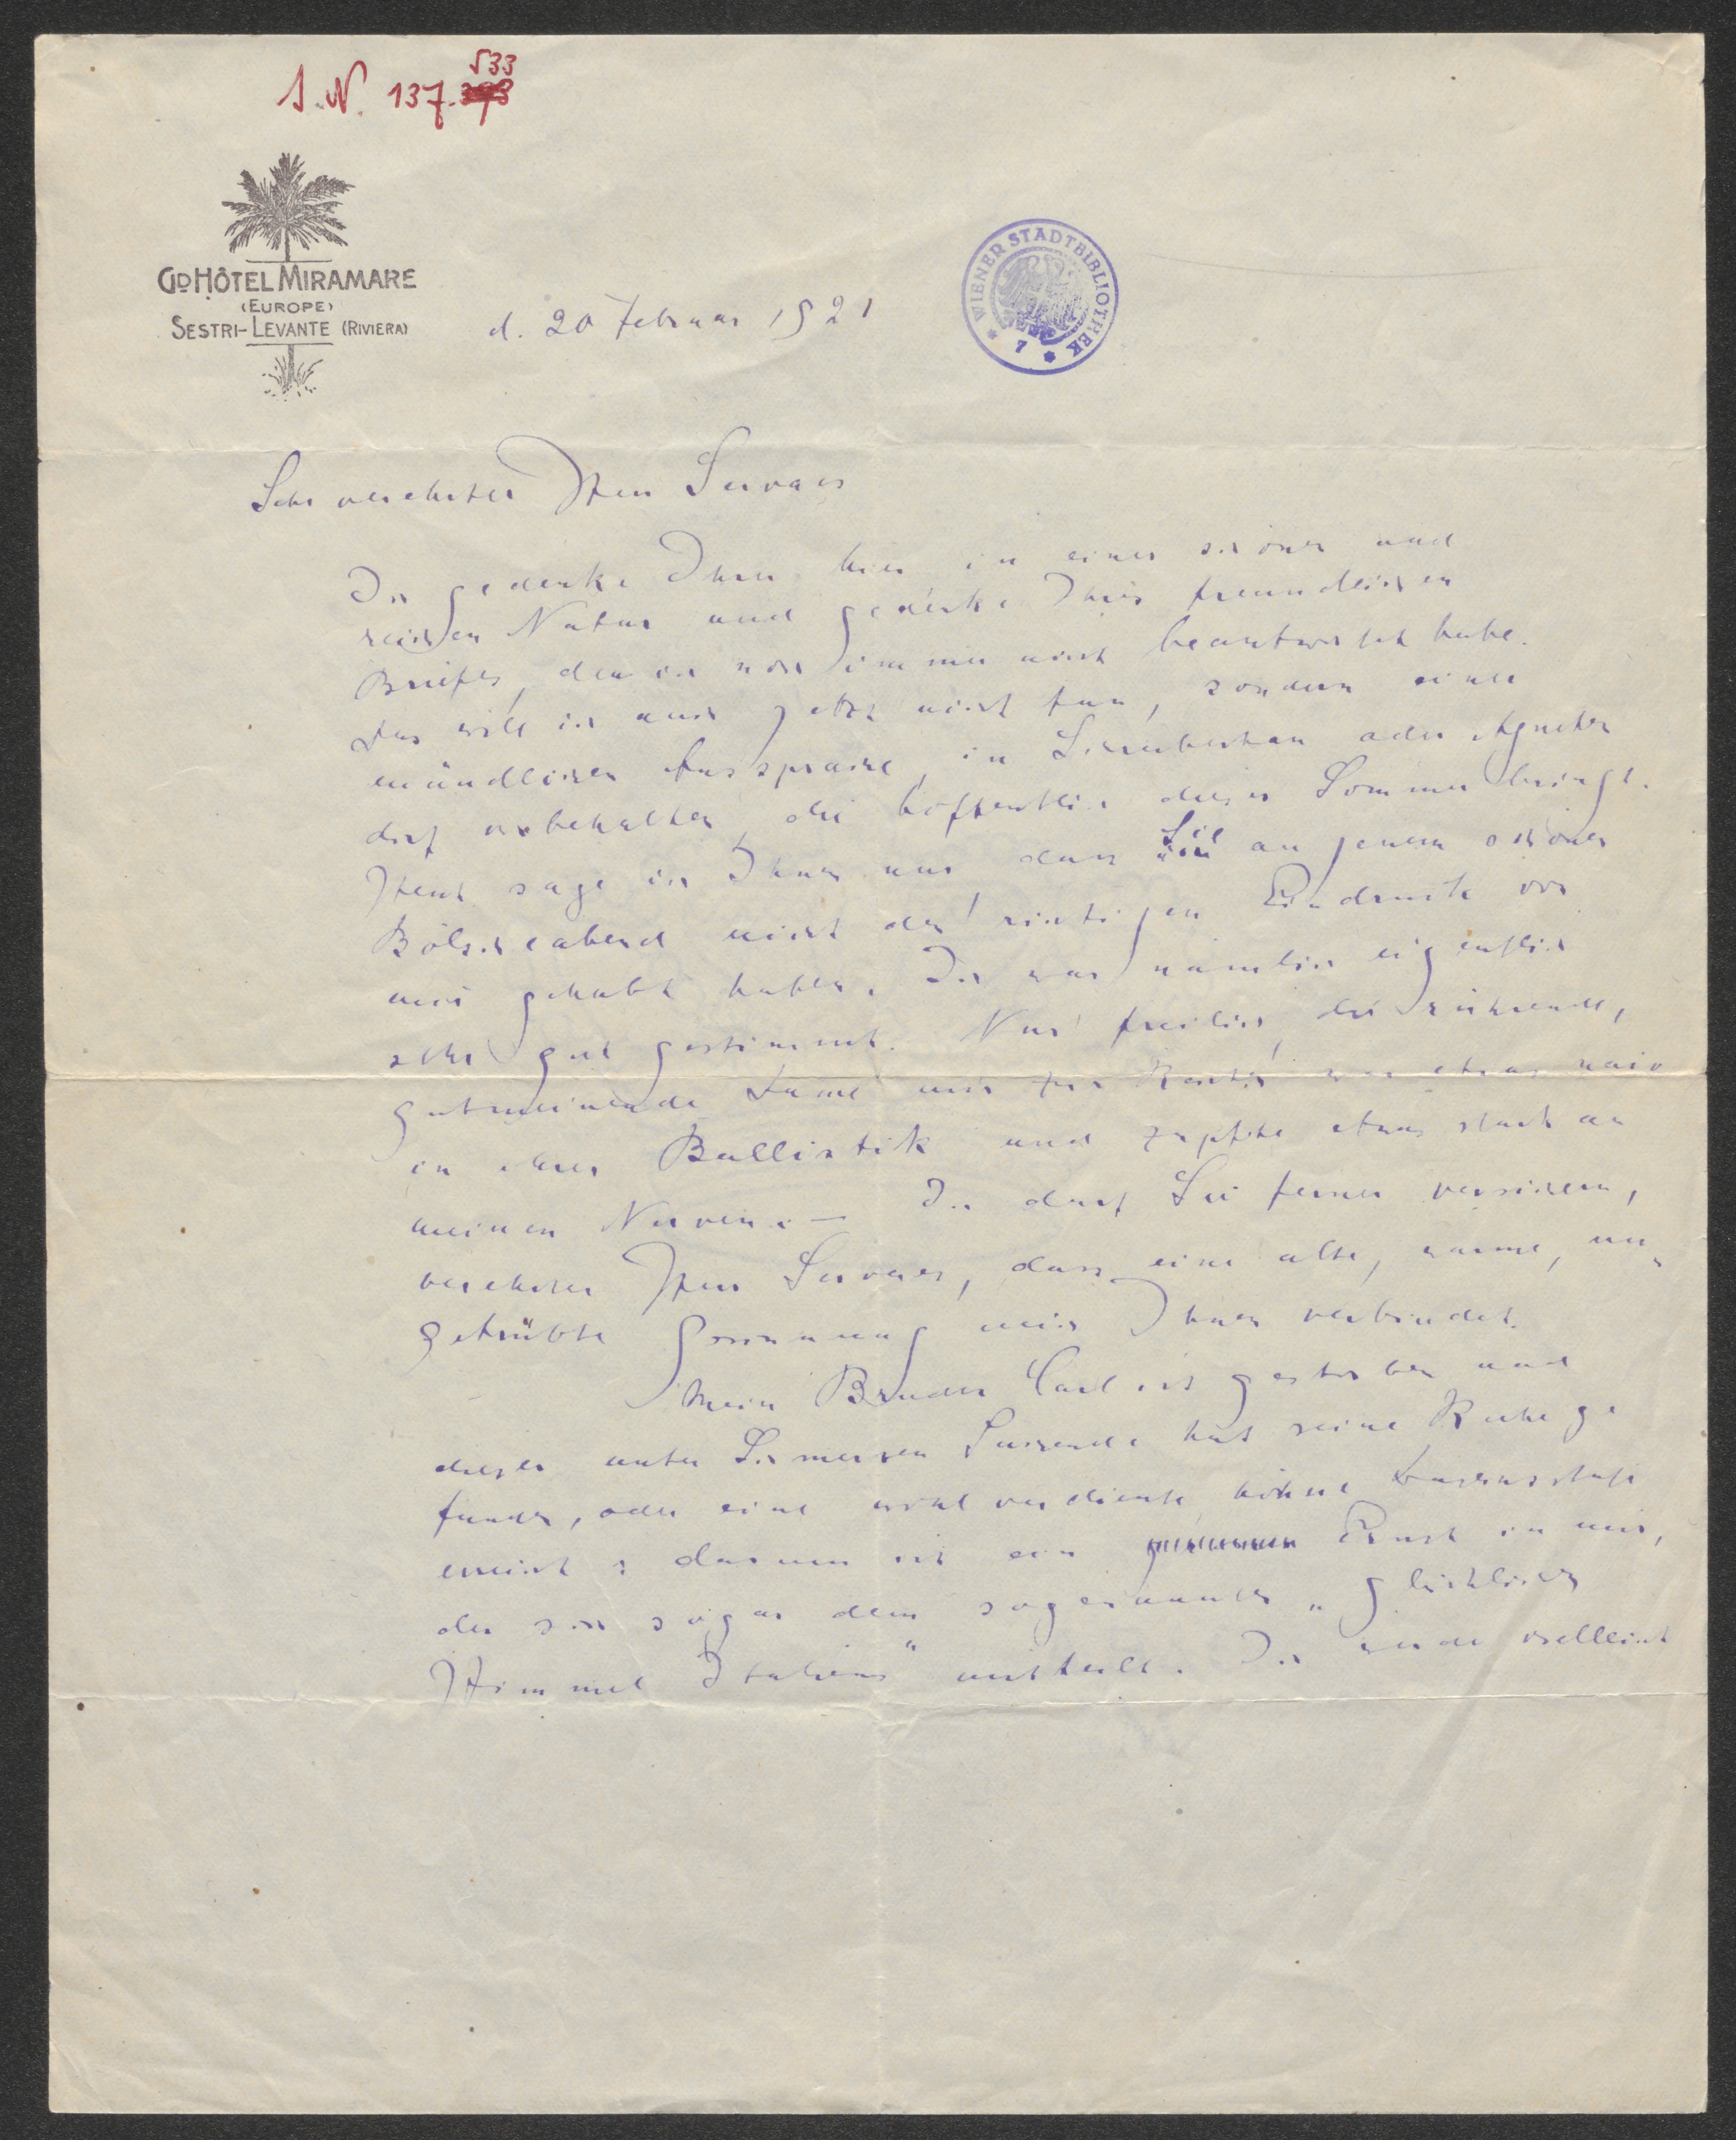 I.N. 137.533
GD HÔTEL MIRAMARE
(EUROPE)
SESTRI-LEVANTE (RIVIERA)
d. 20 Februar 1921
WIENER STADTBIBLIOTHEK
* 7 *
Sehr verehrter Herr Servaes
Ich gedenke Ihrer hier in einer schönen und
reichen Natur und gedenke Ihres freundlichen
Briefes, den ich noch immer nicht beantwortet habe.
Das will ich auch jetzt nicht tun, sondern einer
mündlichen Aussprache, in Schreiberhau oder Agneten
dorf vorbehalten, die hoffentlich dieser Sommer bringt.
Heut sage ich Ihnen nur, dass Sie an jenem schönen
Bölscheabend nicht den richtigen Eindruck von
mir gehabt haben. Ich war nämlich eigentlich
sehr gut gestimmt. Nur freilich, die rührende,
gutmeinende Dame mir zur Rechten war etwas naiv
in ihrer Ballistik und zupfte etwas stark an
meinen Nerven. — Ich darf Sie ferner versichern,
verehrter Herr Servaes, dass eine alte, warme, un-
getrübte Gesinnung mich Ihnen verbindet.
Mein Bruder Carl ist gestorben und
dieser unter Schmerzen Suchende hat seine Ruhe ge
funden, oder eine wohl verdiente höhere Daseinsstufe
erreicht: darum ist ein Ernst in mir,
der sich sogar dem sogenannten „glücklichen
Himmel Italiens“ mitteilt. Ich werde vielleicht